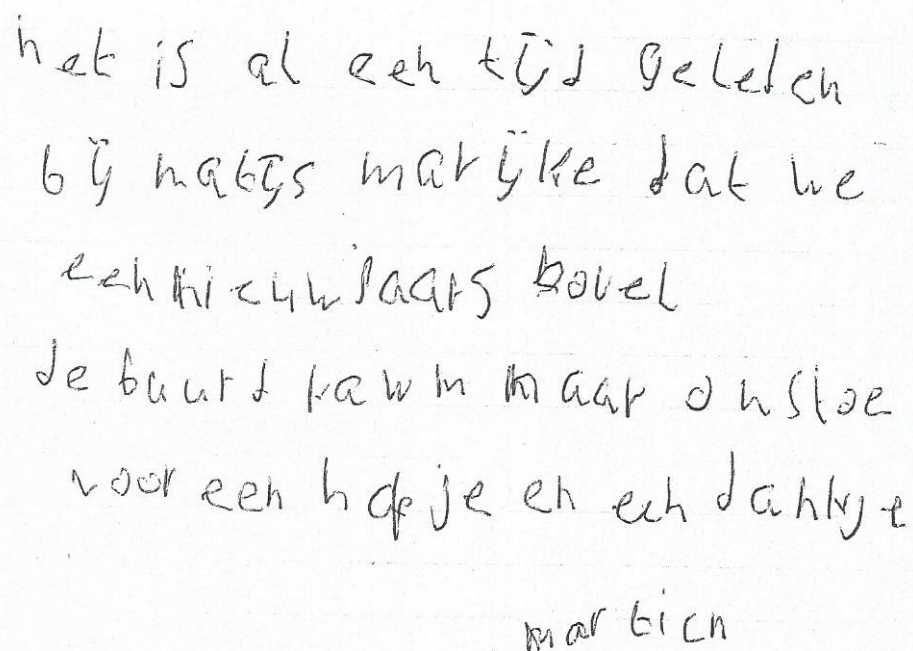 het is al een tijd geleden
bij matijs marijke dat we
een nieuwjaars borel
de buurd kawm maar onstoe
voor een hapje en een dankje
martien